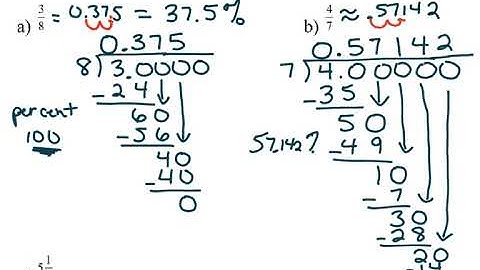 a) 3/8 = 0.375 = 37.5%
0.375
8)3.0000
-24
60
-56
40
-40
0
percent
100
b) 4/7 ≈ .57142
0.57142
7)4.00000
-35
50
-49
57.142?
10
-7
30
-28
20
-14
5 1